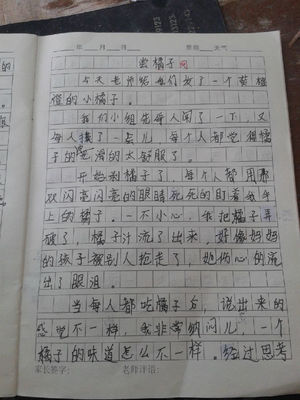 年 月 日 星期 天气
尝橘子
今天老师给我们发了一个黄橙
橙的小橘子。
我们小组先每人闻了一下，又
每人摸了一点儿，每个人都觉得橘
子的皮滑的太舒服了。
开始剥橘子了，每个人都用那
双闪亮闪亮的眼睛死死的盯着手
上的橘子。一不小心，我把橘子弄
破了，橘子汁流了出来，好像妈妈
的孩子被别人抢走了，她伤心的流
出了眼泪。
当每人都吃橘子后，说出来的
感觉不一样，我非常纳闷儿，一个
橘子的味道怎么不一样。经过思考
家长签字： 老师评语：